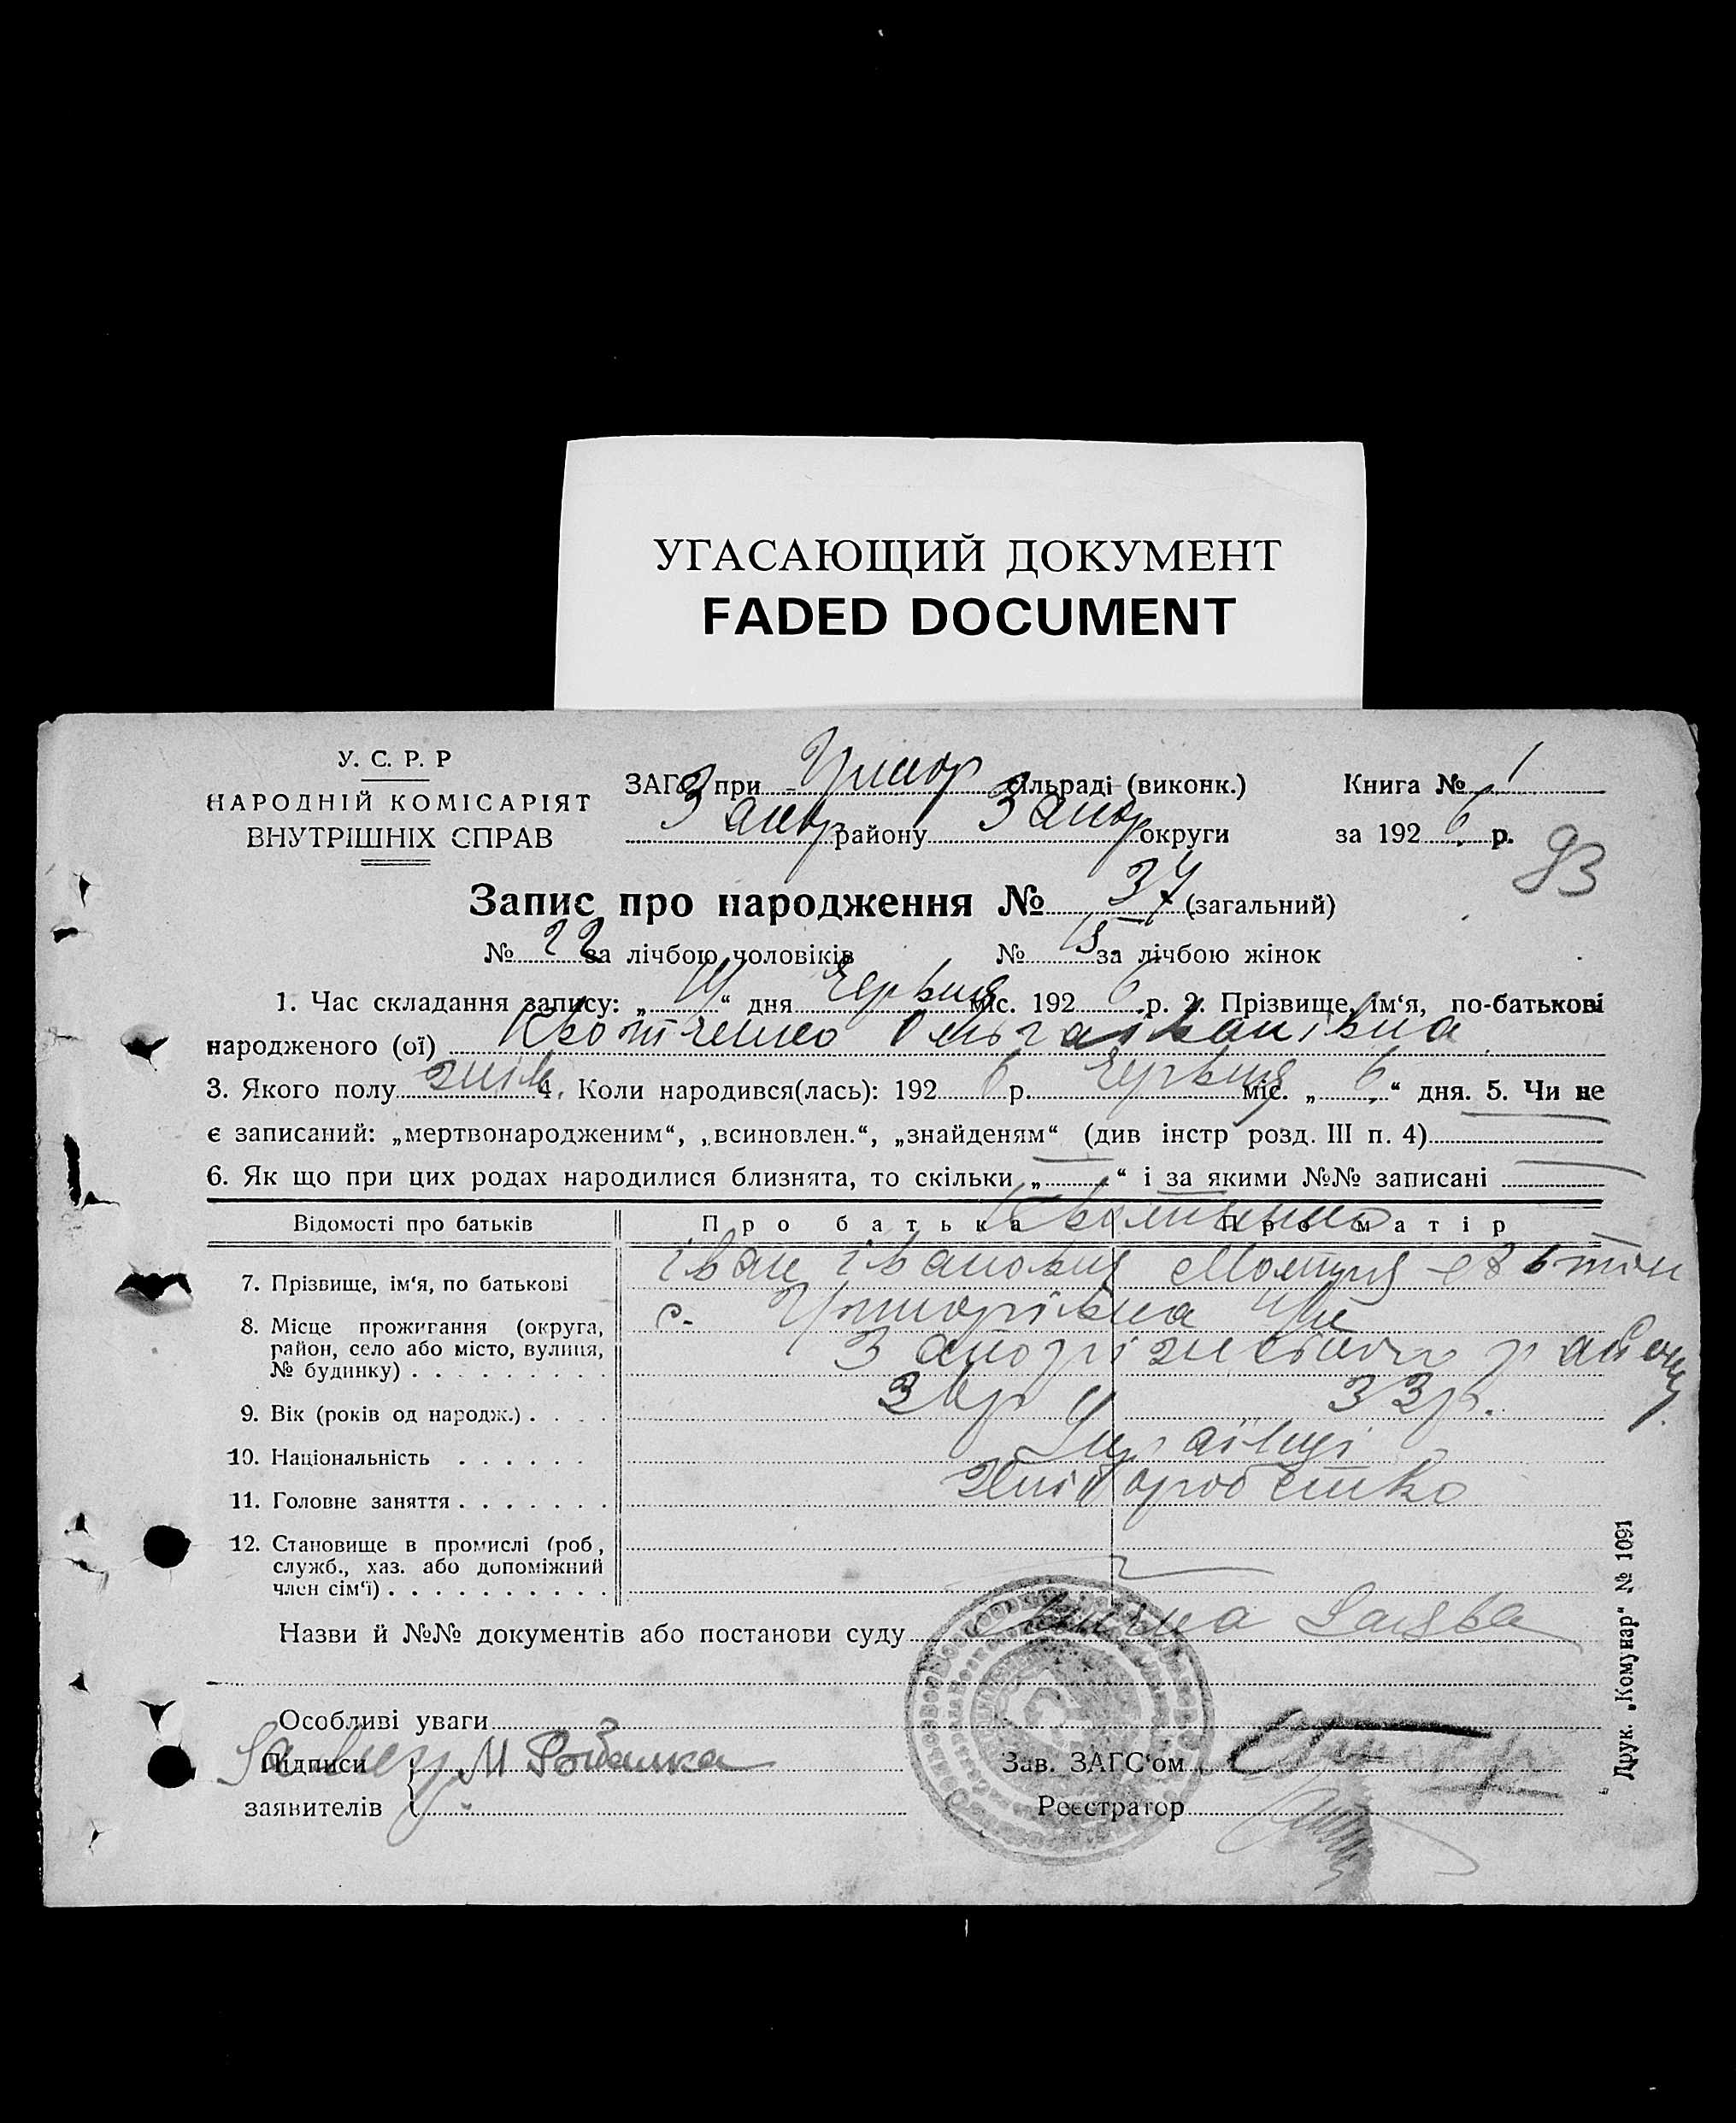 УГАСАЮЩИЙ ДОКУМЕНТ
FADED DOCUMENT
У. С. Р. Р
НАРОДНІЙ КОМІСАРІЯТ
ВНУТРІШНІХ СПРАВ
ЗАГС при Григор сільраді (виконк.)
Запор району Запор округи
Книга № 1
за 1926 р.
93
Запис про народження № 37 (загальний)
№ 22 за лічбою чоловіків № 15 за лічбою жінок
1. Час складання запису: „ “ дня Червня міс. 1926 р. 2. Прізвище, ім‘я, по-батькові
народженого (ої) Ольга Іванівна
3. Якого полу жін 4. Коли народився(лась): 1926 р. Червня міс. „6“ дня. 5. Чи не
є записаний: „мертвонародженим“, „всиновлен.“, „знайденям“ (див інстр розд. III п. 4)
6. Як що при цих родах народилися близнята, то скільки „ “ і за якими №№ записані
Відомості про батьків Про батька Про матір
7. Прізвище, ім‘я, по батькові Іван Іванович
8. Місце прожигання (округа, район, село або місто, вулиця, № будинку) с. Григорівка
Запорізького району
9. Вік (років од народж.) 36р 33р.
10. Національність Українці
11. Головне заняття Хліборобство
12. Становище в промислі (роб, служб., хаз. або допоміжний член сім‘ї)
Назви й №№ документів або постанови суду Заява
Особливі уваги
Підписи заявителів
Зав. ЗАГС‘ом
Реєстратор
Друк. „Комунар“ № 1091